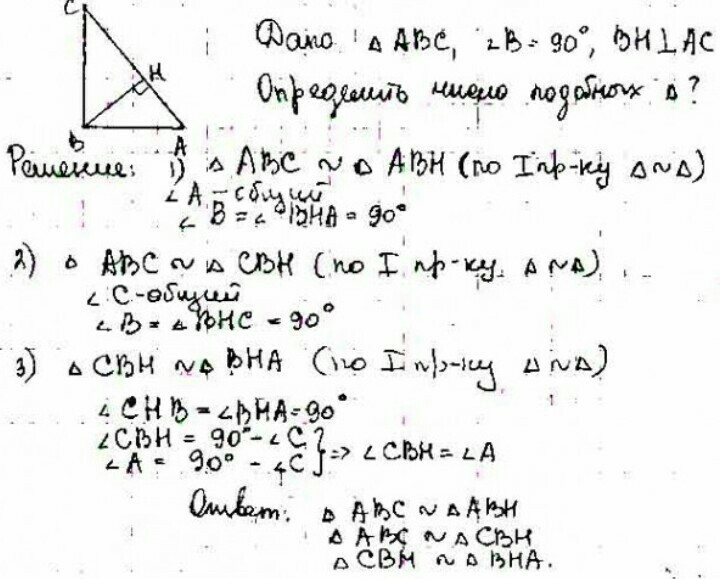 C
H
B
A
Дано: △ ABC, ∠B = 90°, BH⊥AC
Определить число подобных △?
Решение: 1) △ ABC ~ △ ABH (по I пр-ку △~△)
∠A - общий
∠B = ∠BHA = 90°
2) △ ABC ~ △ CBH (по I пр-ку △~△)
∠C - общий
∠B = ∠BHC = 90°
3) △ CBH ~ △ BHA (по I пр-ку △~△)
∠CHB = ∠BHA = 90°
∠CBH = 90° - ∠C
∠A = 90° - ∠C } => ∠CBH = ∠A
Ответ: △ ABC ~ △ ABH
△ ABC ~ △ CBH
△ CBH ~ △ BHA.